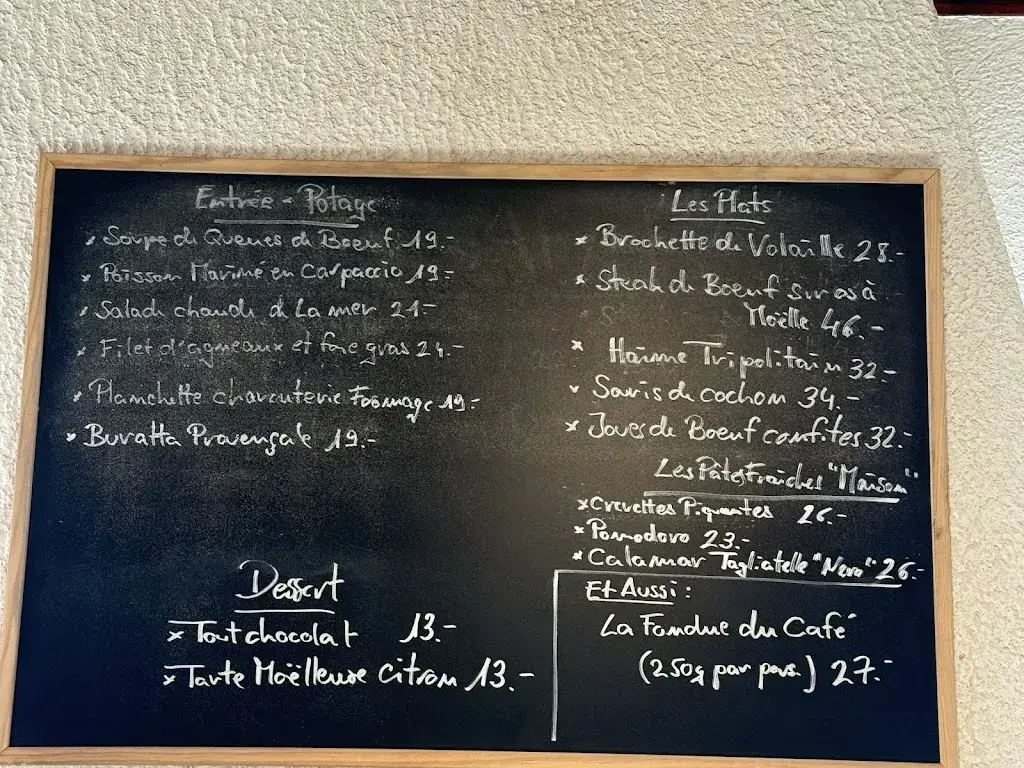 Entrée - Potage
x Soupe de Queues de Boeuf 19.-
x Poisson Mariné en Carpaccio 19.-
x Salade chaude de La mer 21.-
x Filet d'agneaux et foie gras 24.-
x Planchette charcuterie Fromage 19.-
x Buratta Provençale 19.-
Dessert
x Tout chocolat 13.-
x Tarte Moëlleuse citron 13.-
Les Plats
x Brochette de Volaille 28.-
x Steak de Boeuf sur os à
Moëlle 46.-
x Tripolitain 32.-
x Souris de cochon 34.-
x Joues de Boeuf confites 32.-
Les Pâtes Fraîches "Maison"
x Crevettes Piquantes 26.-
x Pomodoro 23.-
x Calamar Tagliatelle "Nero" 26.-
Et Aussi :
La Fondue du Café
(250g par pers.) 27.-